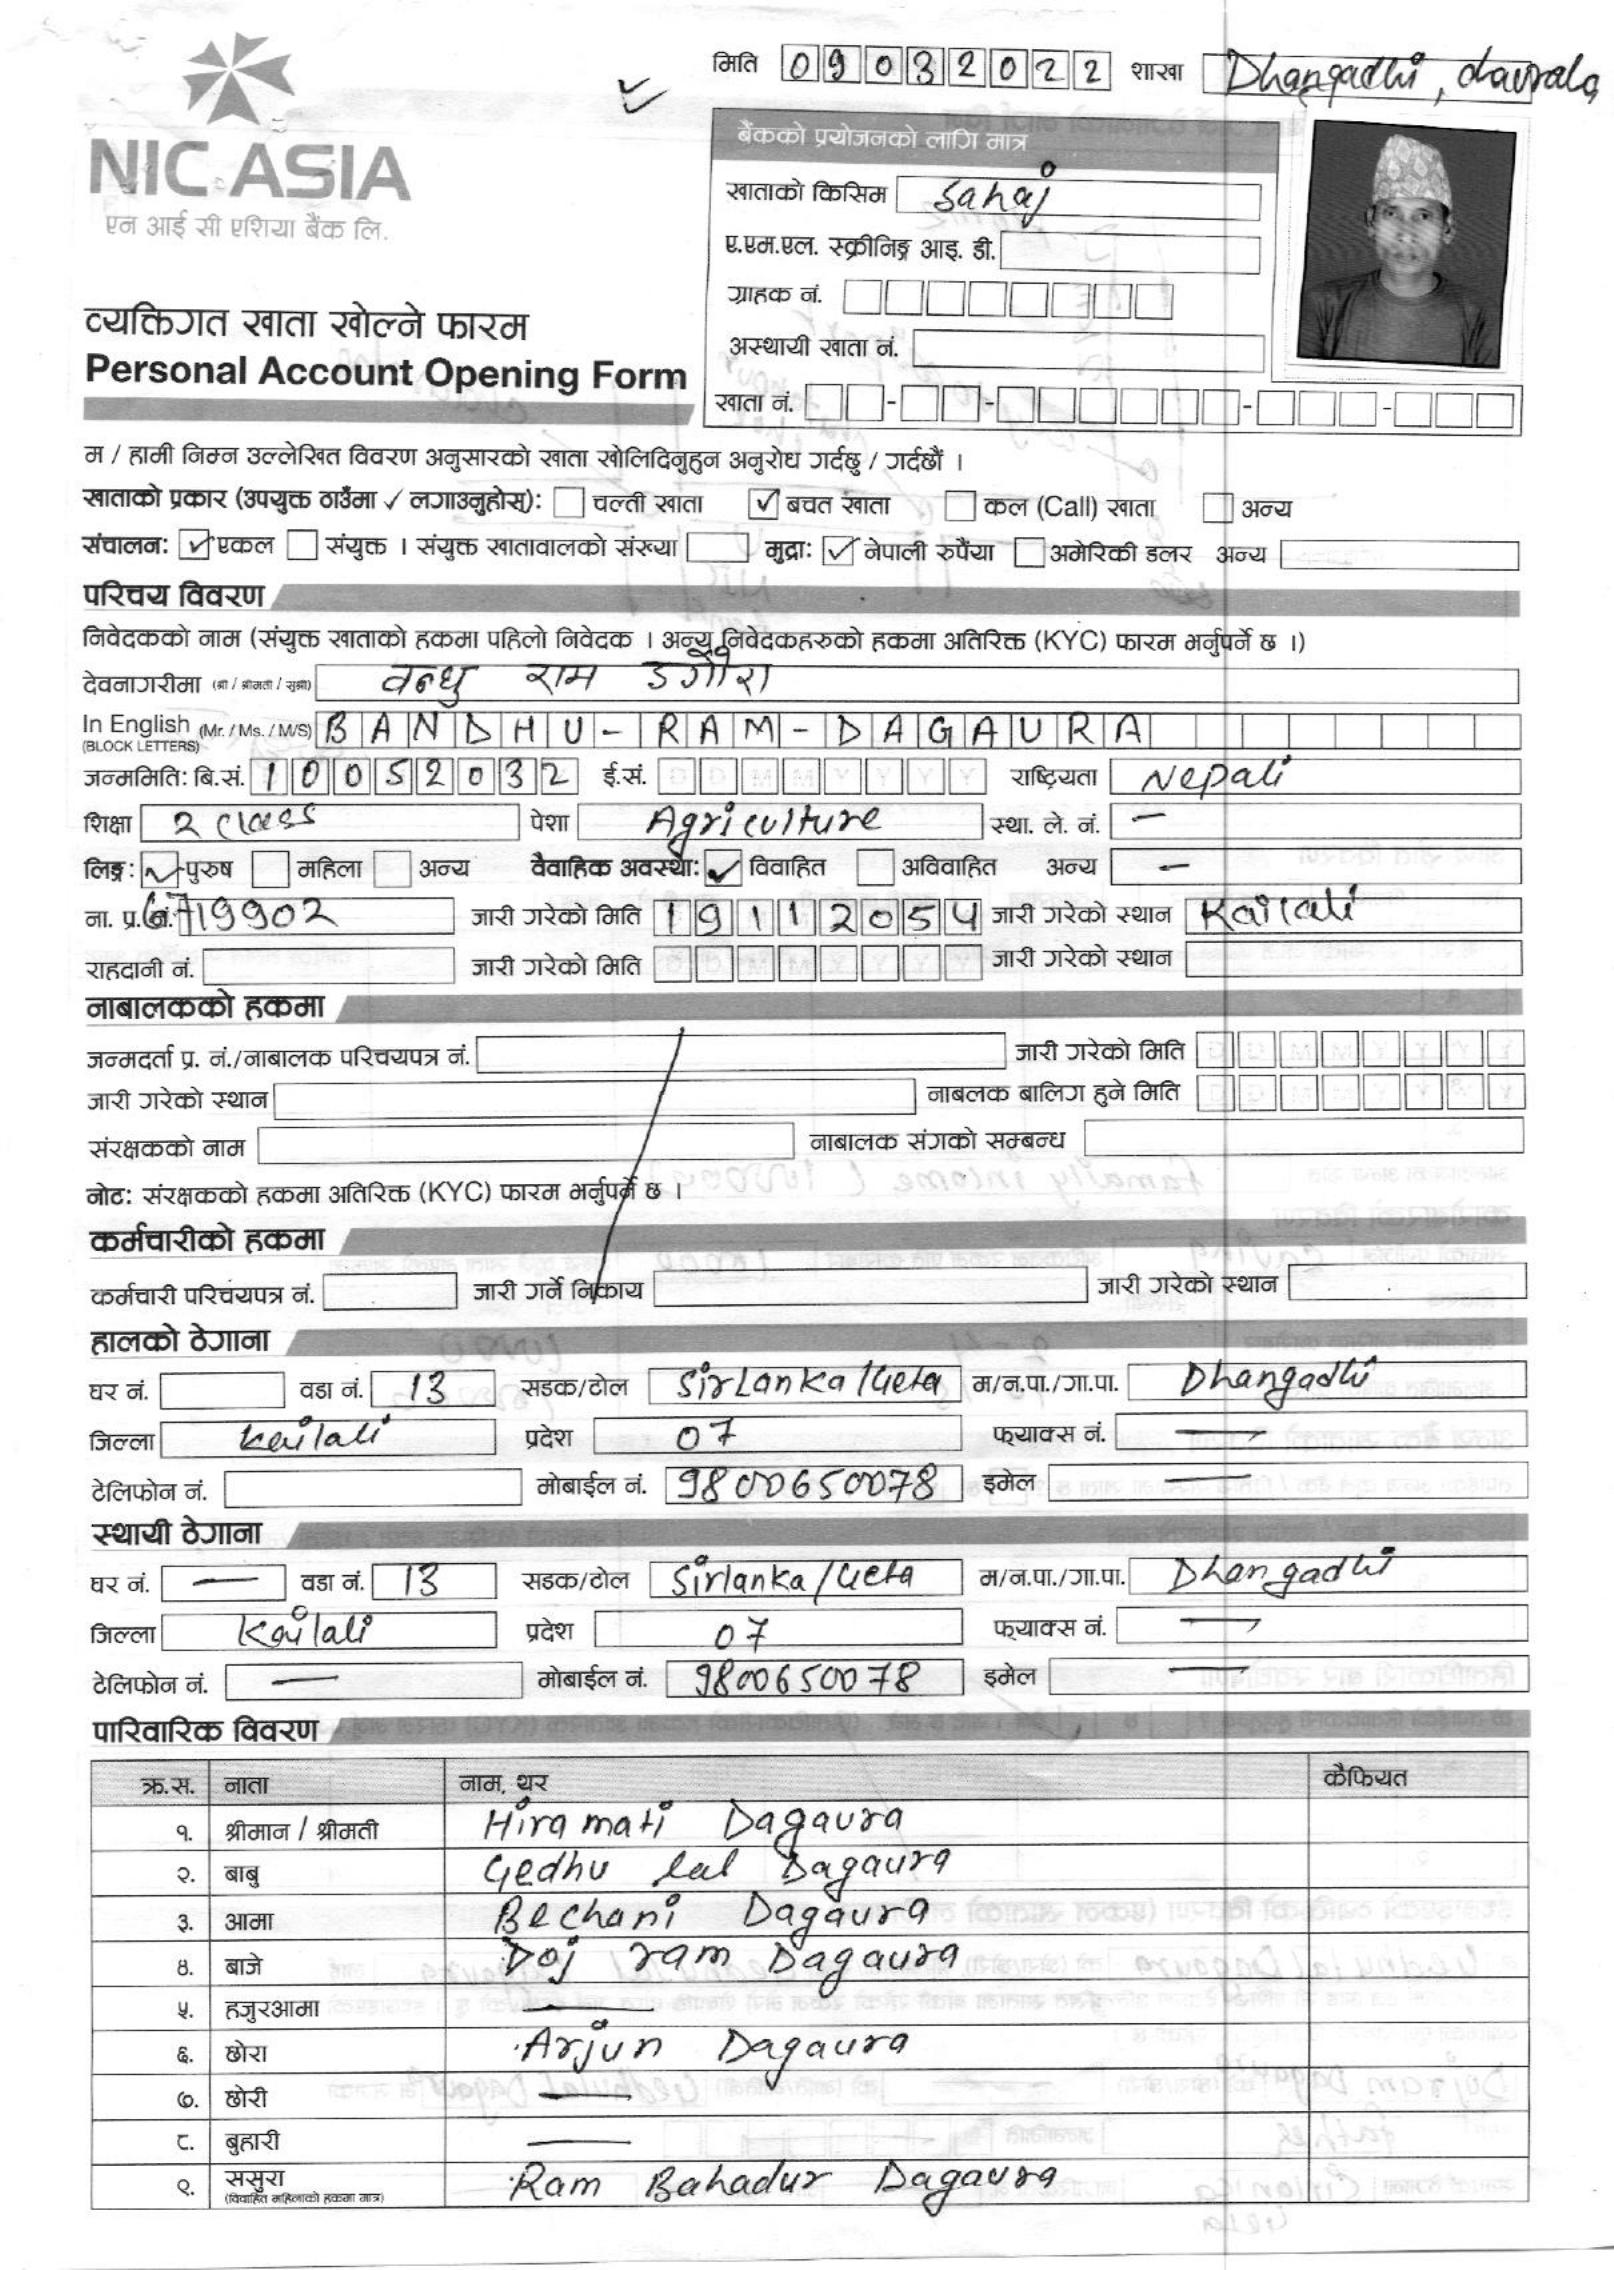 मिति 09032022 शाखा Dhangadhi, chauraha
NIC ASIA
एन आई सी एशिया बैंक लि.
बैंकको प्रयोजनको लागि मात्र
खाताको किसिम Sahaj
ए.एम.एल. स्क्रीनिङ्ग आइ. डी.
ग्राहक नं.
अस्थायी खाता नं.
खाता नं.
व्यक्तिगत खाता खोल्ने फारम
Personal Account Opening Form
म / हामी निम्न उल्लेखित विवरण अनुसारको खाता खोलिदिनुहुन अनुरोध गर्दछु / गर्दछौं ।
खाताको प्रकार (उपयुक्त ठाउँमा ✓ लगाउनुहोस्): चल्ती खाता ✓ बचत खाता कल (Call) खाता अन्य
संचालन: ✓ एकल संयुक्त । संयुक्त खातावालको संख्या मुद्रा: ✓ नेपाली रुपैंया अमेरिकी डलर अन्य
परिचय विवरण
निवेदकको नाम (संयुक्त खाताको हकमा पहिलो निवेदक । अन्य निवेदकहरुको हकमा अतिरिक्त (KYC) फारम भर्नुपर्ने छ ।)
देवनागरीमा (श्री / श्रीमती / सुश्री) वन्धु राम डगौरा
In English (Mr. / Ms. / M/S) BANDHU-RAM-DAGAURA
(BLOCK LETTERS)
जन्ममिति: बि.सं. 10052032 ई.सं. राष्ट्रियता Nepali
शिक्षा 2 class पेशा Agriculture स्था. ले. नं. —
लिङ्ग: ✓ पुरुष महिला अन्य वैवाहिक अवस्था: ✓ विवाहित अविवाहित अन्य —
ना. प्र. नं. 19902 जारी गरेको मिति 19112054 जारी गरेको स्थान Kailali
राहदानी नं. जारी गरेको मिति जारी गरेको स्थान
नाबालकको हकमा
जन्मदर्ता प्र. नं./नाबालक परिचयपत्र नं. जारी गरेको मिति
जारी गरेको स्थान नाबलक बालिग हुने मिति
संरक्षकको नाम नाबालक संगको सम्बन्ध
नोट: संरक्षकको हकमा अतिरिक्त (KYC) फारम भर्नुपर्ने छ ।
कर्मचारीको हकमा
कर्मचारी परिचयपत्र नं. जारी गर्ने निकाय जारी गरेको स्थान
हालको ठेगाना
घर नं. वडा नं. 13 सडक/टोल SirLanka/Geta म/न.पा./गा.पा. Dhangadhi
जिल्ला kailali प्रदेश 07 फ्याक्स नं. —
टेलिफोन नं. मोबाईल नं. 9800650078 इमेल —
स्थायी ठेगाना
घर नं. — वडा नं. 13 सडक/टोल Sirlanka/Geta म/न.पा./गा.पा. Dhangadhi
जिल्ला Kailali प्रदेश 07 फ्याक्स नं. —
टेलिफोन नं. — मोबाईल नं. 9800650078 इमेल —
पारिवारिक विवरण
क्र.स. नाता नाम, थर कैफियत
१. श्रीमान / श्रीमती Hiramati Dagaura
२. बाबु Gedhu lal Dagaura
३. आमा Bechani Dagaura
४. बाजे Doj ram Dagaura
५. हजुरआमा —
६. छोरा Arjun Dagaura
७. छोरी —
८. बुहारी —
९. ससुरा Ram Bahadur Dagaura
(विवाहित महिलाको हकमा मात्र)